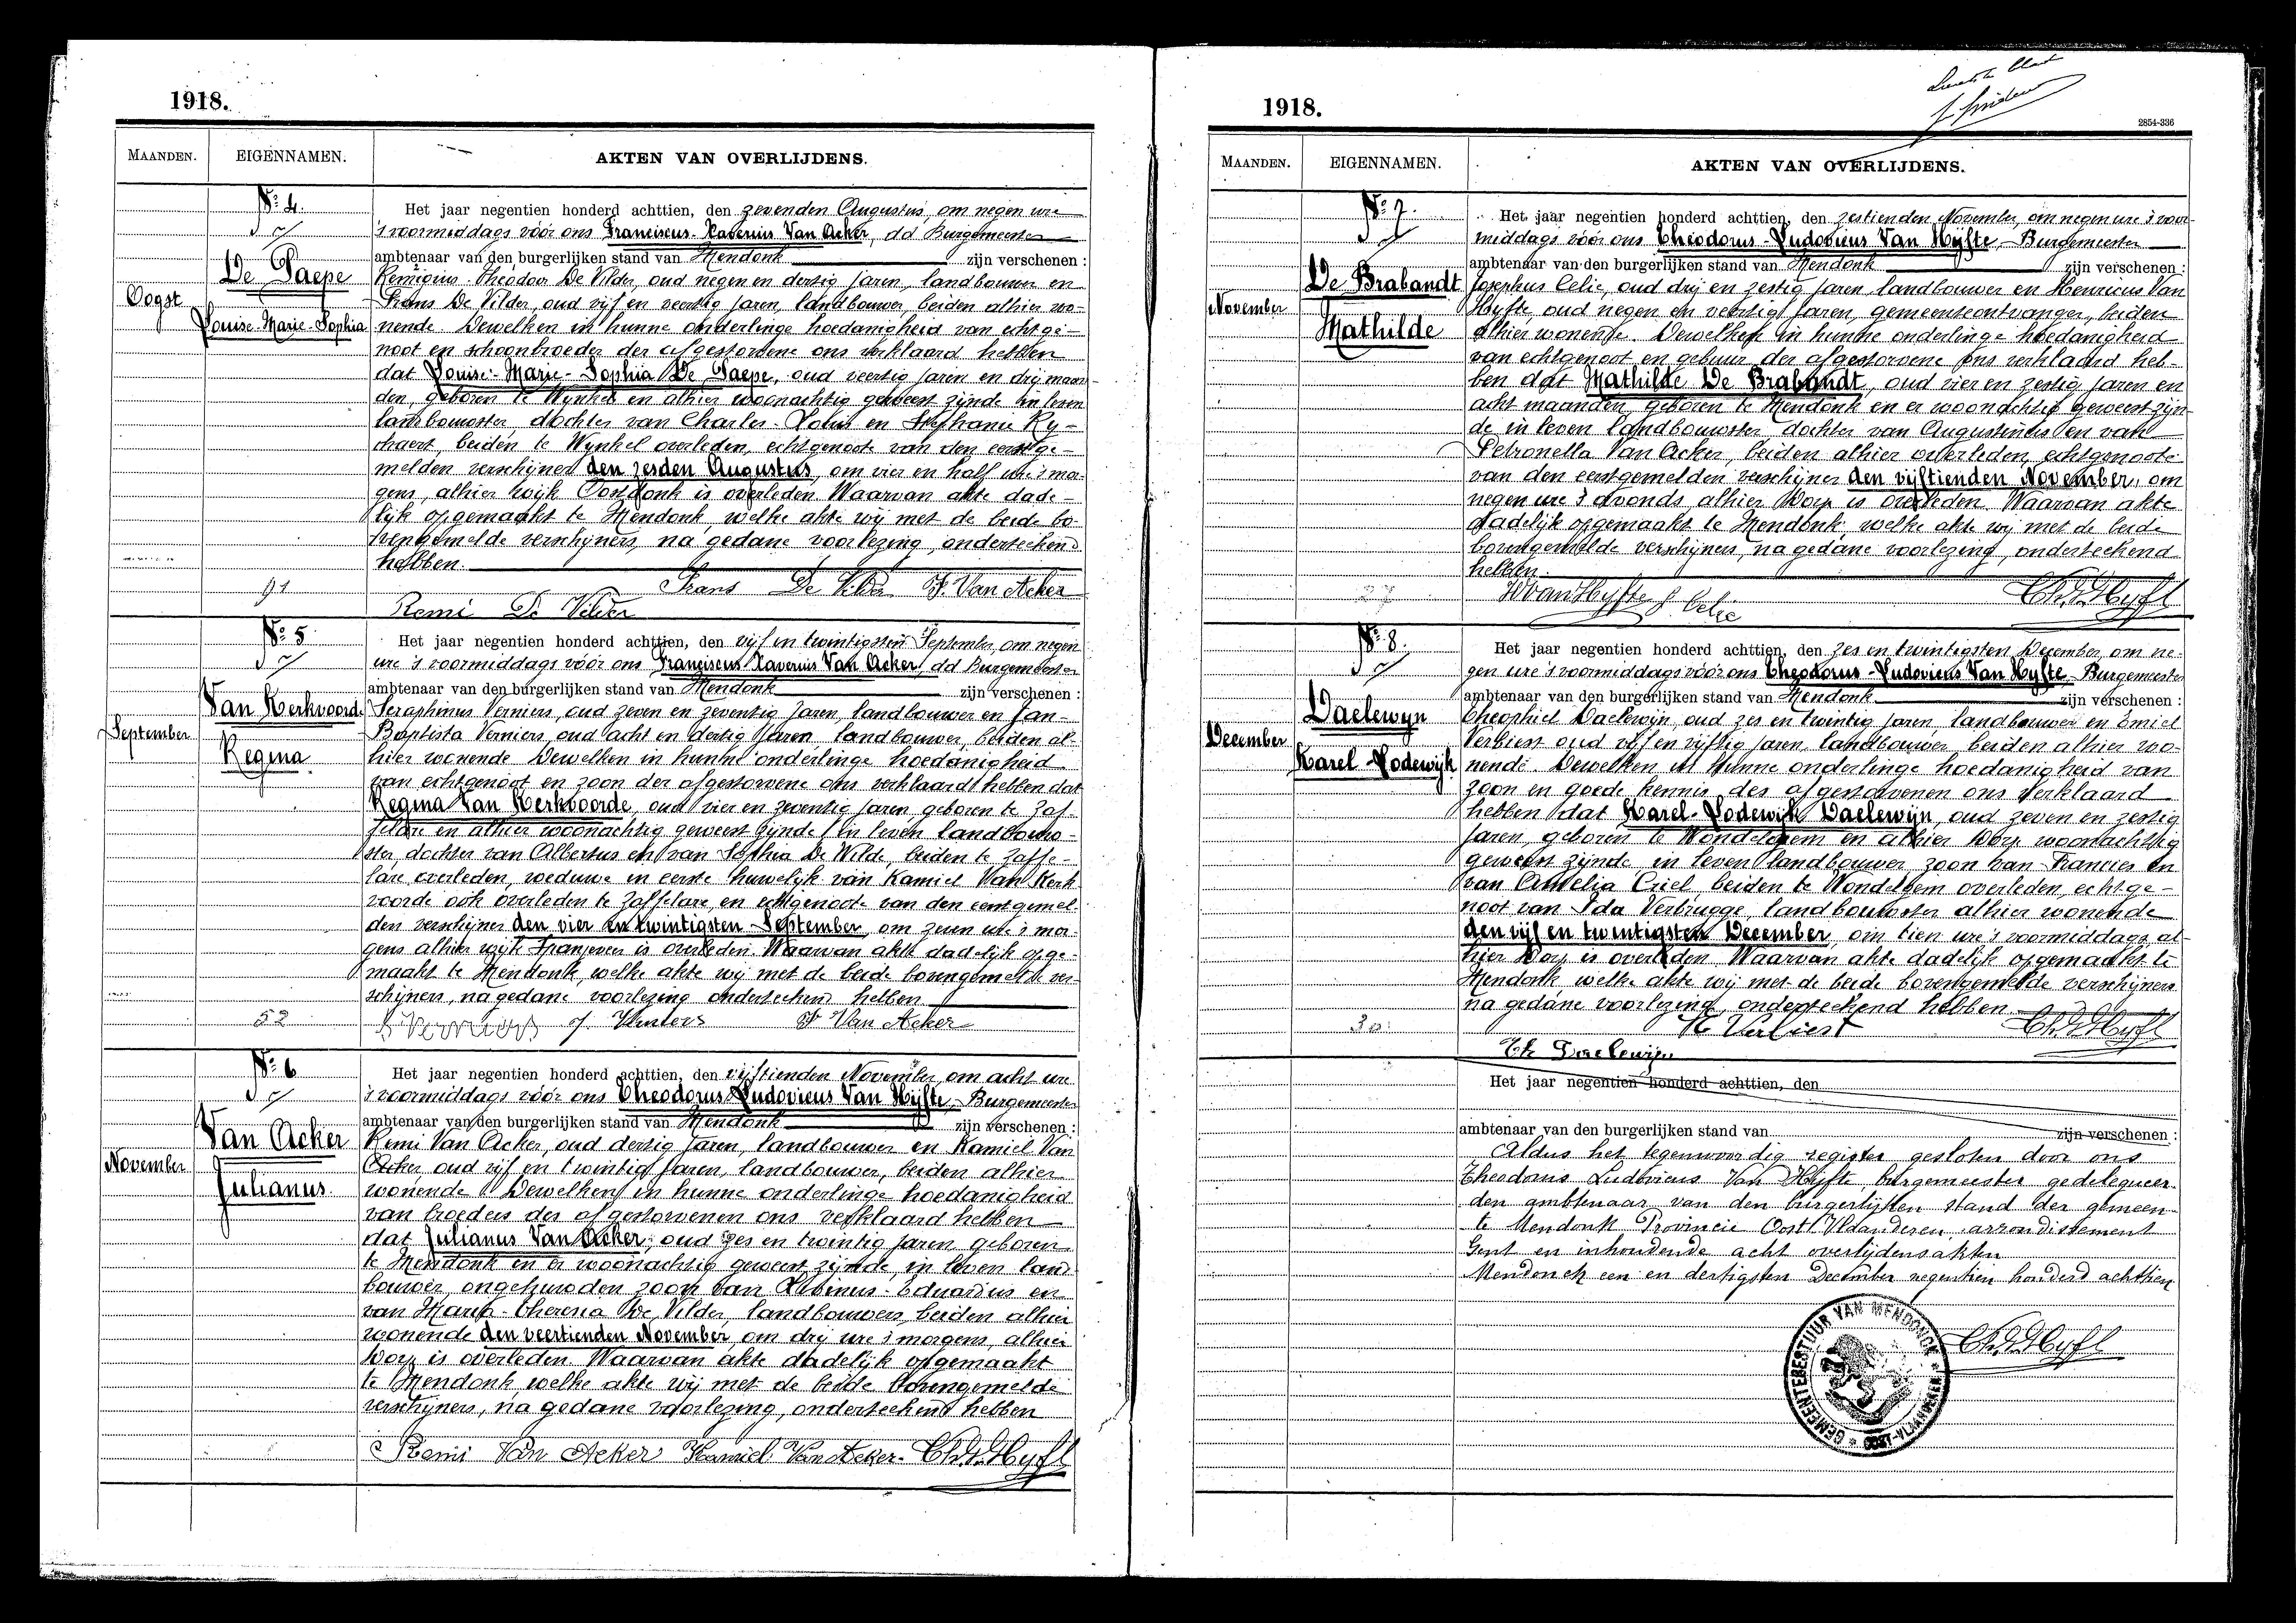 1918.
MAANDEN. EIGENNAMEN. AKTEN VAN OVERLIJDENS.
Nº 4.
De Paepe
Oogst
Louise-Marie-Sophia
Het jaar negentien honderd achttien, den zevenden Augustus, om negen ure
's voormiddags vóór ons Franciscus-Xaverius Van Acker, dd Burgemeester
ambtenaar van den burgerlijken stand van Mendonk zijn verschenen :
Remigius-Theodoor De Vilder, oud negen en dertig jaren, landbouwer en
Frans De Vilder, oud vijf en veertig jaren, landbouwer, beiden alhier wo-
nende. Dewelken in hunne onderlinge hoedanigheid van echtge-
noot en schoonbroeder der afgestorvene ons verklaard hebben
dat Louise-Marie-Sophia De Paepe, oud veertig jaren en drij maan-
den, geboren te Wynkel en alhier woonachtig geweest zijnde in leven
landbouwster, dochter van Charles-Louis en Stephanie Ry-
chaert, beiden te Wynkel overleden, echtgenoote van den eerstge-
melden verschijner den zesden Augustus, om vier en half ure 's mor-
gens, alhier wijk Oostdonk is overleden. Waarvan akte dade-
lijk opgemaakt te Mendonk, welke akte wij met de beide bo-
vengemelde verschijners, na gedane voorlezing, onderteekend
hebben.
91
Frans De Vilder F. Van Acker
Remi De Vilder
Nº 5
Van Kerkvoorde
September
Regina
Het jaar negentien honderd achttien, den vijf en twintigsten September, om negen
ure 's voormiddags vóór ons Franciscus Xaverius Van Acker, dd Burgemeester
ambtenaar van den burgerlijken stand van Mendonk zijn verschenen :
Seraphinus Verniers, oud zeven en zeventig jaren, landbouwer en Jan-
Baptista Verniers, oud acht en dertig jaren landbouwer, beiden al-
hier wonende Dewelken in hunne onderlinge hoedanigheid
van echtgenoot en zoon der afgestorvene ons verklaard hebben dat
Regina Van Kerkvoorde, oud vier en zeventig jaren, geboren te Zaf-
felare en alhier woonachtig geweest zijnde, in leven landbouw-
ster, dochter van Albertus en van Sophia De Wilde, beiden te Zaffe-
lare overleden, weduwe in eerste huwelijk van Kamiel Van Kerk
voorde ook overleden te Zaffelare, en echtgenoote van den eerstgemel-
den verschijner den vier en twintigsten September, om zeven ure 's mor-
gens alhier wijk is overleden. Waarvan akte dadelijk opge-
maakt te Mendonk, welke akte wij met de beide bovengemelde ver-
schijners, na gedane voorlezing onderteekend hebben
52
S Verniers J. Verniers F. Van Acker
Nº 6
Van Acker
November
Julianus
Het jaar negentien honderd achttien, den vijftienden November, om acht ure
's voormiddags vóór ons Theodorus Ludovicus Van Hijfte, Burgemeester
ambtenaar van den burgerlijken stand van Mendonk zijn verschenen :
Remi Van Acker, oud dertig jaren, landbouwer en Kamiel Van
Acker oud vijf en twintig jaren, landbouwer, beiden alhier
wonende. Dewelken in hunne onderlinge hoedanigheid
van broeders des afgestorvenen ons verklaard hebben
dat Julianus Van Acker, oud zes en twintig jaren, geboren
te Mendonk en er woonachtig geweest zijnde, in leven land-
bouwer, ongehuwden zoon van Livinus-Eduardus en
van Maria-Theresia De Vilder, landbouwers, beiden alhier
wonende den veertienden November, om drij ure 's morgens, alhier
Dorp is overleden. Waarvan akte dadelijk opgemaakt
te Mendonk, welke akte wij met de beide bovengemelde
verschijners, na gedane voorlezing, onderteekend hebben
Remi Van Acker Kamiel Van Acker Th. V. Hyfte
1918.
2854-336
MAANDEN. EIGENNAMEN. AKTEN VAN OVERLIJDENS.
Nº 7.
De Brabandt
November
Mathilde
Het jaar negentien honderd achttien, den zestienden November, om negen ure 's voor-
middags vóór ons Theodorus-Ludovicus Van Hijfte, Burgemeester
ambtenaar van den burgerlijken stand van Mendonk zijn verschenen :
Josephus Celie, oud drij en zestig jaren, landbouwer en Henricus Van
Hijfte, oud negen en veertig jaren, gemeenteontvanger, beiden
alhier wonende. Dewelken in hunne onderlinge hoedanigheid
van echtgenoot en gebuur der afgestorvene ons verklaard heb-
ben dat Mathilde De Brabandt, oud vier en zestig jaren en
acht maanden, geboren te Mendonk en er woonachtig geweest zijn-
de in leven landbouwster dochter van Augustinus en van
Petronella Van Acker, beiden alhier overleden, echtgenoote
van den eerstgemelden verschijner den vijftienden November, om
negen ure 's avonds, alhier Dorp is overleden. Waarvan akte
dadelijk opgemaakt te Mendonk welke akte wij met de beide
bovengemelde verschijners, na gedane voorlezing, onderteekend
hebben.
27
H Van Hyfte J. Celie Th. V. Hyfte
Nº 8.
Daelewijn
December
Karel-Lodewijk
Het jaar negentien honderd achttien, den zes en twintigsten December, om ne-
gen ure 's voormiddags vóór ons Theodorus-Ludovicus Van Hijfte, Burgemeester
ambtenaar van den burgerlijken stand van Mendonk zijn verschenen :
Theophiel Daelewijn, oud zes en twintig jaren, landbouwer en Emiel
Verbiest oud vijf en vijftig jaren, landbouwer, beiden alhier wo-
nende. Dewelken in hunne onderlinge hoedanigheid van
zoon en goede kennis des afgestorvenen ons verklaard
hebben dat Karel-Lodewijk Daelewijn, oud zeven en zestig
jaren, geboren te Wondelgem en alhier Dorp woonachtig
geweest zijnde in leven landbouwer, zoon van Francies en
van Amelia Criel, beiden te Wondelgem overleden, echtge-
noot van Ida Verbrugge, landbouwster alhier wonende
den vijf en twintigsten December, om tien ure 's voormiddags, al-
hier Dorp is overleden. Waarvan akte dadelijk opgemaakt te
Mendonk, welke akte wij met de beide bovengemelde verschijners
na gedane voorlezing, onderteekend hebben
30
E Verbiest Th. V. Hyfte
Th Daelewijn
Het jaar negentien honderd achttien, den
ambtenaar van den burgerlijken stand van zijn verschenen :
Aldus het tegenwoordig register gesloten door ons
Theodorus Ludovicus Van Hijfte, burgemeester gedelegueer-
den ambtenaar van den burgerlijken stand der gemeen-
te Mendonk Provincie Oost Vlaanderen, arrondissement
Gent en inhoudende acht overlijdensakten
Mendonck een en dertigsten December negentien honderd achttien
GEMEENTEBESTUUR VAN MENDONCK * OOST-VLAANDEREN *
Th. V. Hyfte